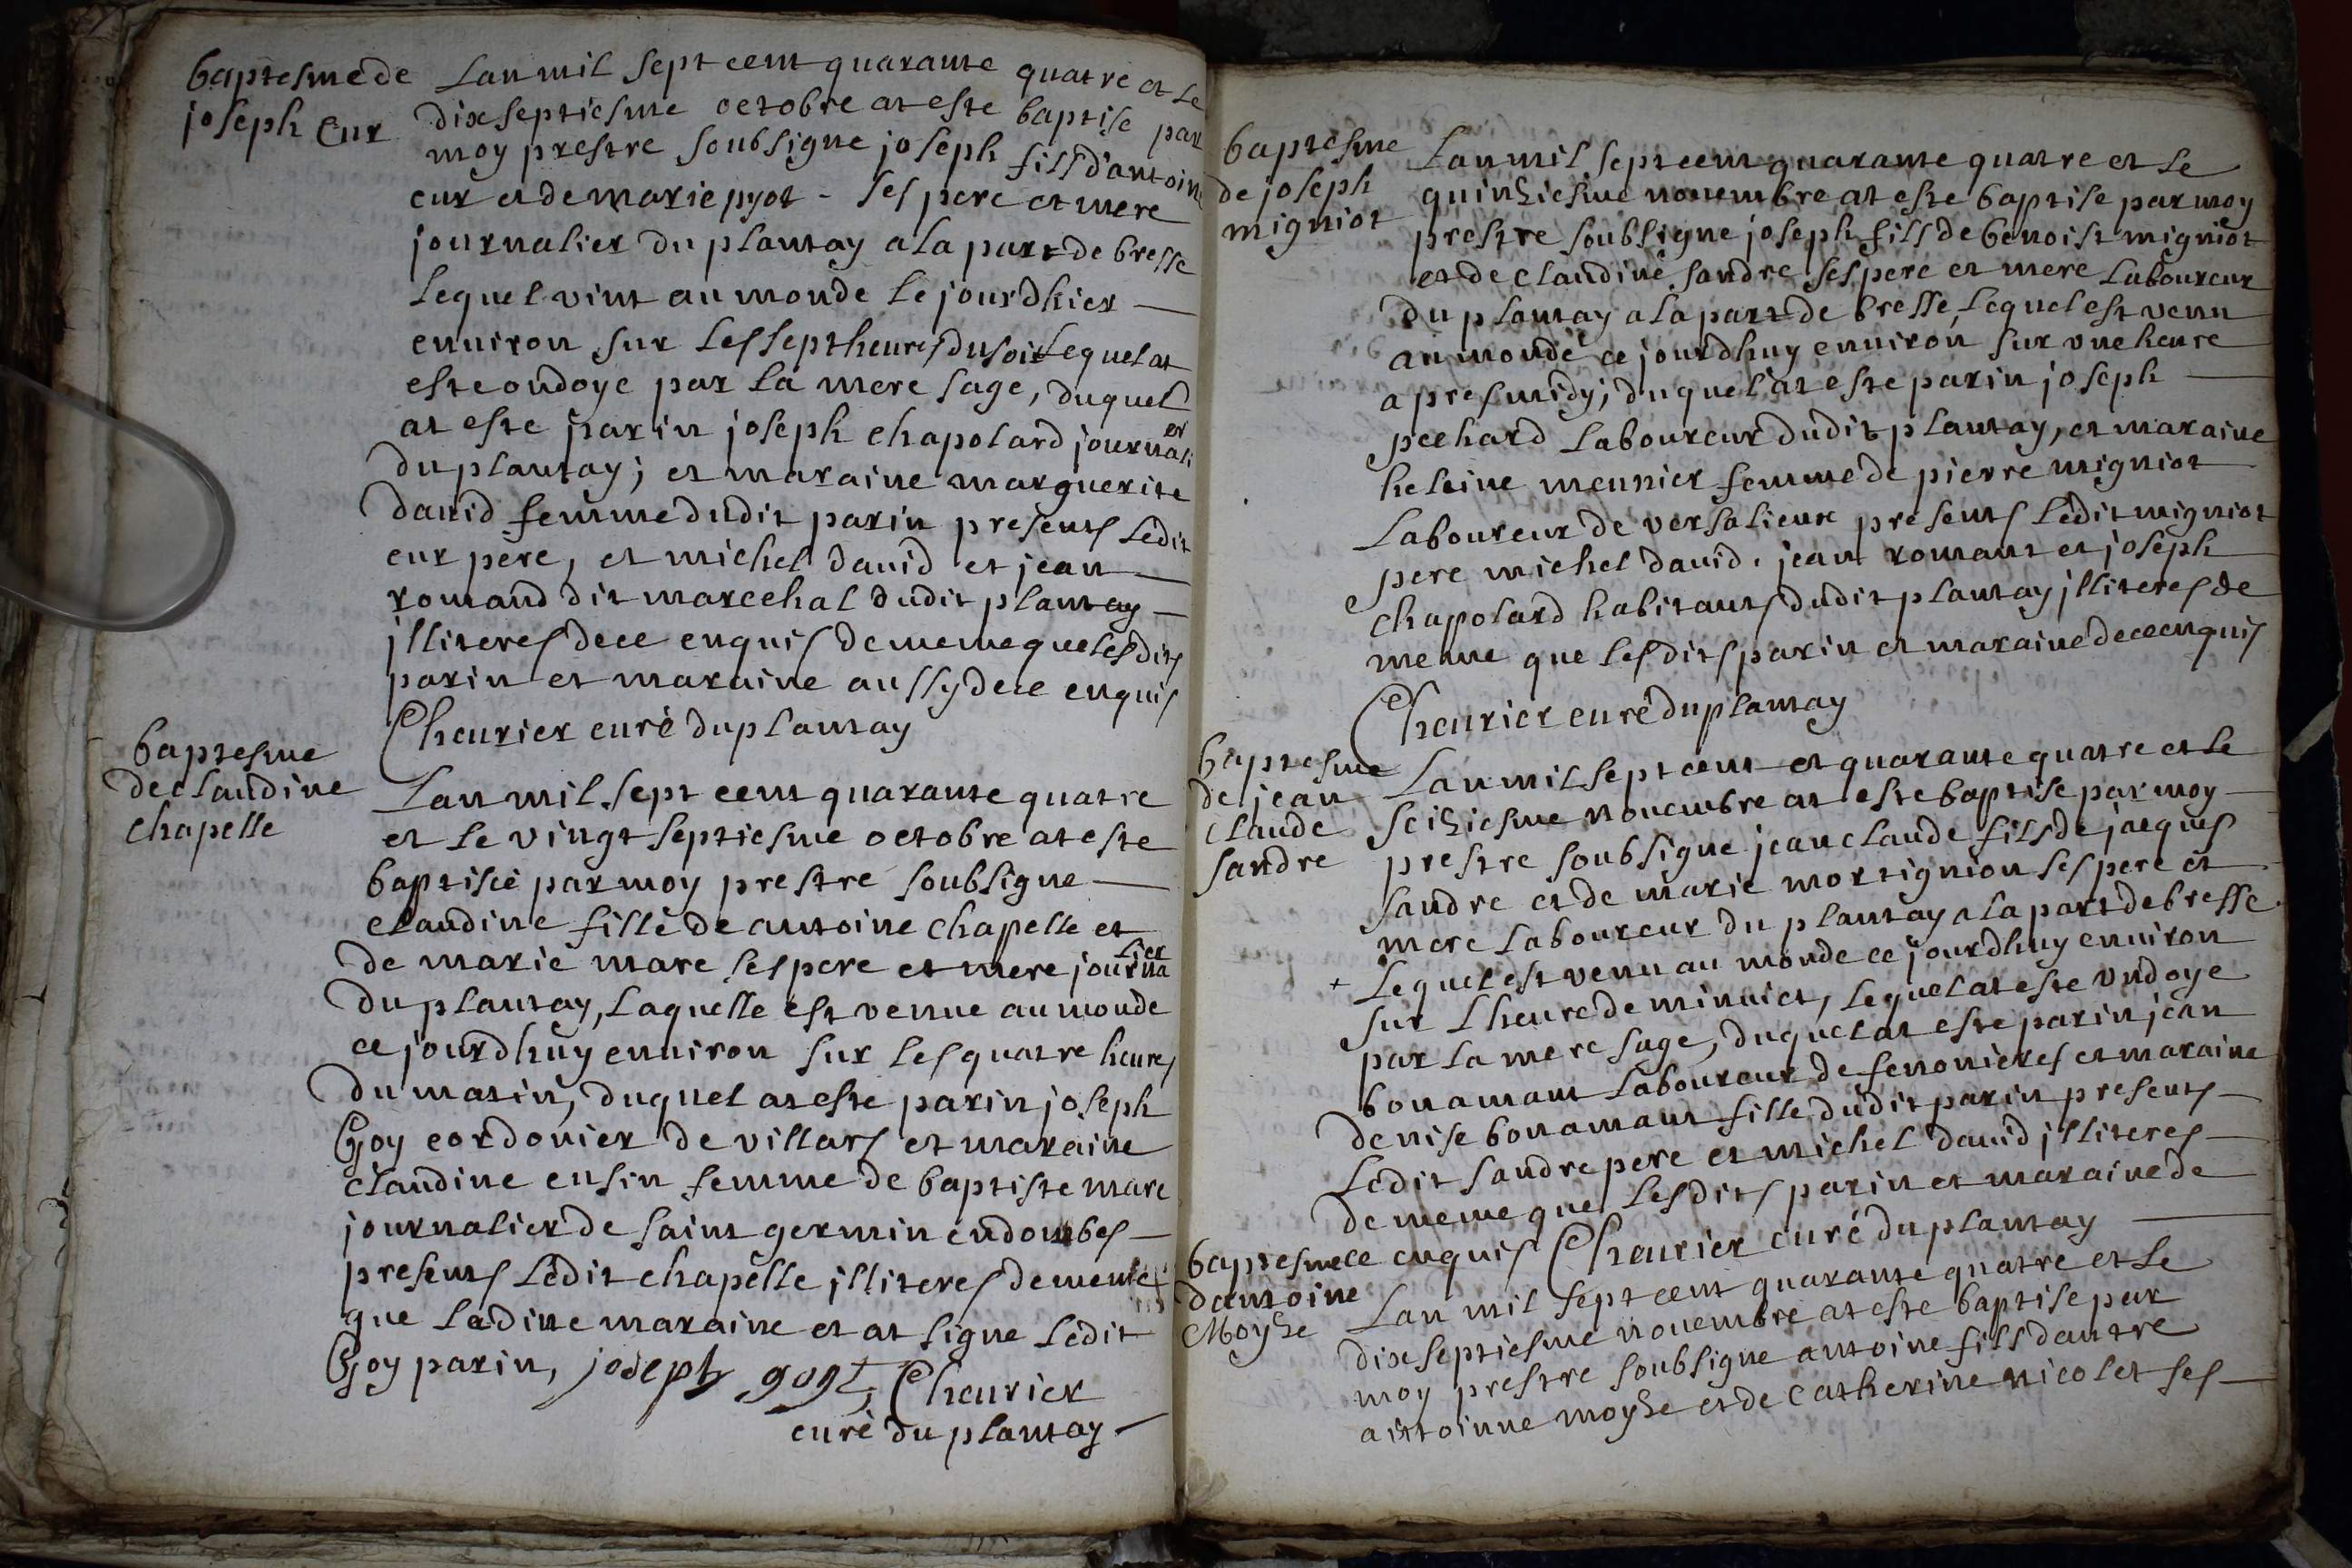 baptesme de
joseph Cur
Lan mil sept cent quarante quatre et le
dixseptiesme octobre at este baptise par
moy prestre soubsigne joseph fils d'antoine
cur et de marie pyot - ses pere et mere
journalier du plantay a la part de bresse
lequel vint au monde le jourdhier —
enuiron sur les sept heures du soir lequel at
este ondoye par la mere sage, duquel
at este parin joseph chapolard journalier
du plantay; et maraine marguerite
dauid femme dudit parin presents ledit
cur pere, et michel dauid et jean —
romand dit marcehal dudit plantay —
jlliteres de ce enquis de meme que lesdits
parin et maraine aussy de ce enquis
Cheurier curé du plantay
baptesme
de claudine
chapelle
Lan mil sept cent quarante quatre
et le vingt septiesme octobre at este
baptisée par moy prestre soubsigne —
claudine fille de antoine chapelle et
de marie mare ses pere et mere journalier
du plantay, laquelle est venue au monde
ce jourdhuy enuiron sur les quatre heures
du matin, duquel at este parin joseph
Goy cordonier de villars et maraine
claudine ensin femme de baptiste mare
journalier de saint germin en dombes —
presents ledit chapelle jlliteres de meme
que laditte maraine et at signe ledit
Goy parin, joseph goy, Cheurier
curé du plantay —
baptesme
de joseph
migniot
Lan mil sept cent quarante quatre et le
quinziesme nouembre at este baptise par moy
prestre soubsigne joseph fils de benoist migniot
et de claudine sandre ses pere et mere laboureur
du plantay a la part de bresse, lequel est venu
au monde ce jourdhuy enuiron sur vne heure
apres midy; duquel at este parin joseph —
pechard laboureur dudit plantay, et maraine
heleine meunier femme de pierre migniot
laboureur de versalieux presents ledit migniot
pere michel dauid, jean romant et joseph
chapolard habitants dudit plantay jlliteres de
meme que lesdits parin et maraine de ce enquis
Cheurier curé du plantay
baptesme
de jean
claude
sandre
Lan mil sept cent et quarante quatre et le
seiziesme nouembre at este baptise par moy —
prestre soubsigne jean claude fils de jacques
sandre et de marie mortignion ses pere et
mere laboureur du plantay a la part de bresse
+ lequel est venu au monde ce jourdhuy enuiron
sur lheure de minuict, lequel at este vndoye
par la mere sage, duquel at este parin jean
bonamant laboureur de senonieres et maraine
denise bonamant fille dudit parin presents —
ledit sandre pere et michel dauid jlliteres —
de meme que lesdits parin et maraine de
ce enquis Cheurier curé du plantay —
baptesme
dantoine
Moyze
Lan mil sept cent quarante quatre et le
dixseptiesme nouembre at este baptise par
moy prestre soubsigne antoine fils dautre
antoinne moyze et de Catherine nicolet ses —